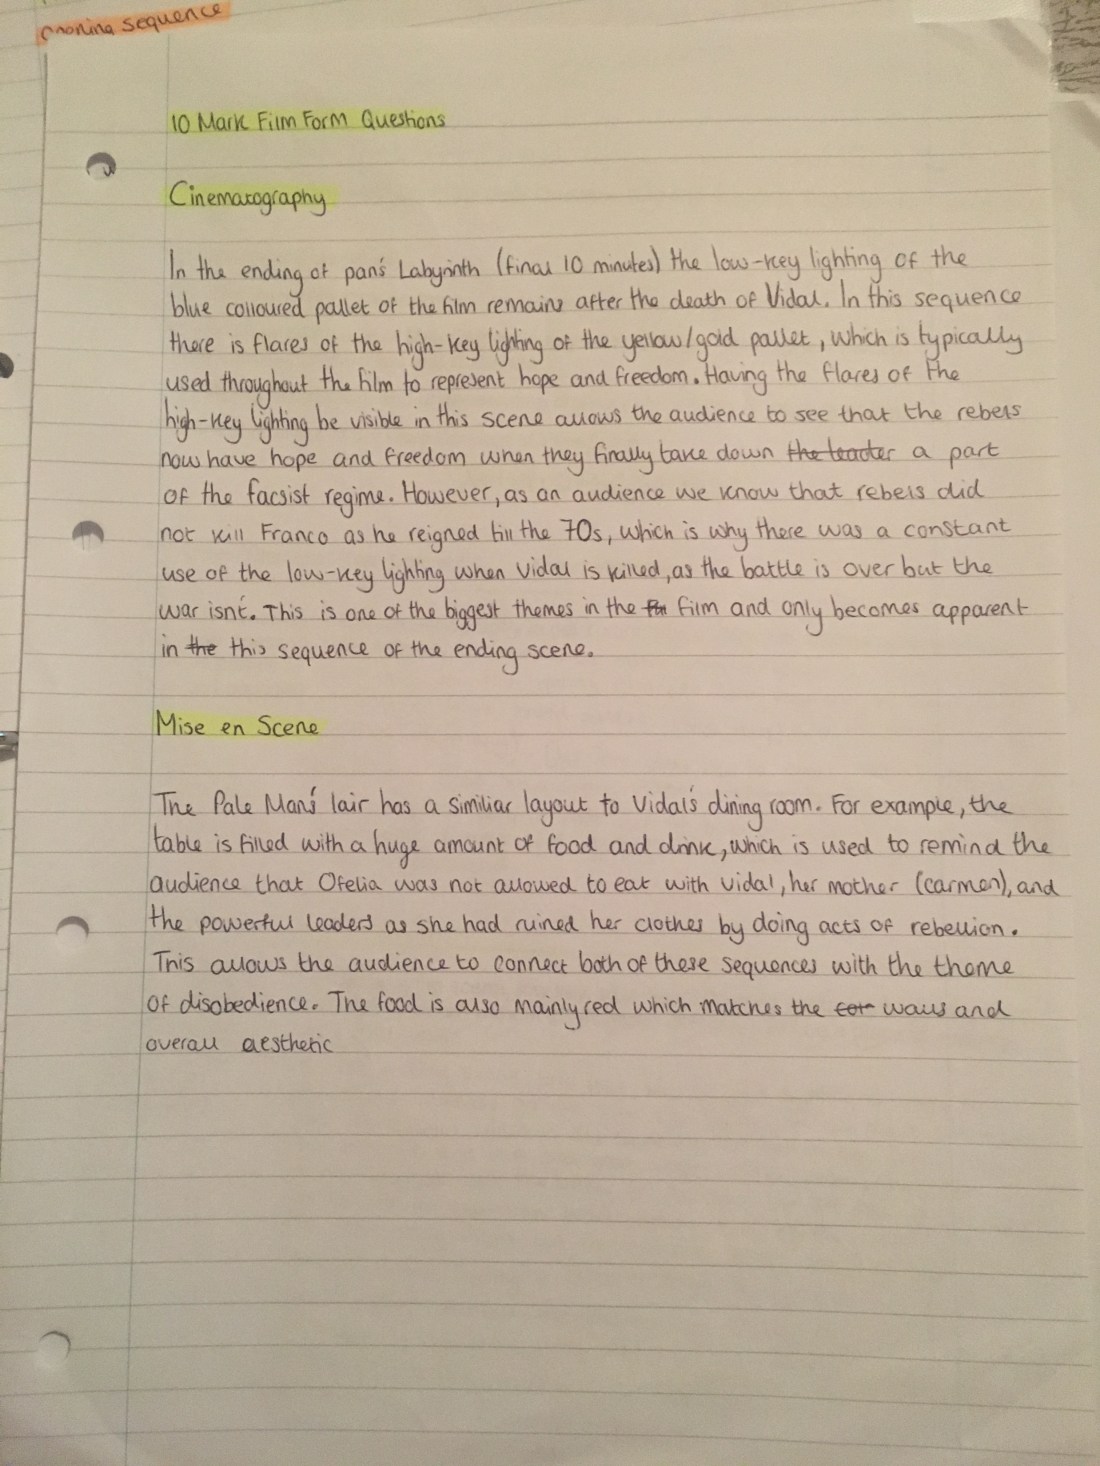 opening sequence
10 Mark Film Form Questions
Cinematography
In the ending of pan's Labyrinth (final 10 minutes) the low-key lighting of the
blue coloured pallet of the film remains after the death of Vidal. In this sequence
there is flares of the high-key lighting of the yellow/gold pallet, which is typically
used throughout the film to represent hope and freedom. Having the flares of the
high-key lighting be visible in this scene allows the audience to see that the rebels
now have hope and freedom when they finally take down the leader a part
of the facsist regime. However, as an audience we know that rebels did
not kill Franco as he reigned till the 70s, which is why there was a constant
use of the low-key lighting when Vidal is killed, as the battle is over but the
war isn't. This is one of the biggest themes in the film and only becomes apparent
in the this sequence of the ending scene.
Mise en Scene
The Pale Man's lair has a similiar layout to Vidal's dining room. For example, the
table is filled with a huge amount of food and drink, which is used to remind the
audience that Ofelia was not allowed to eat with Vidal, her mother (carmen), and
the powerful leaders as she had ruined her clothes by doing acts of rebellion.
This allows the audience to connect both of these sequences with the theme
of disobedience. The food is also mainly red which matches the walls and
overall aesthetic